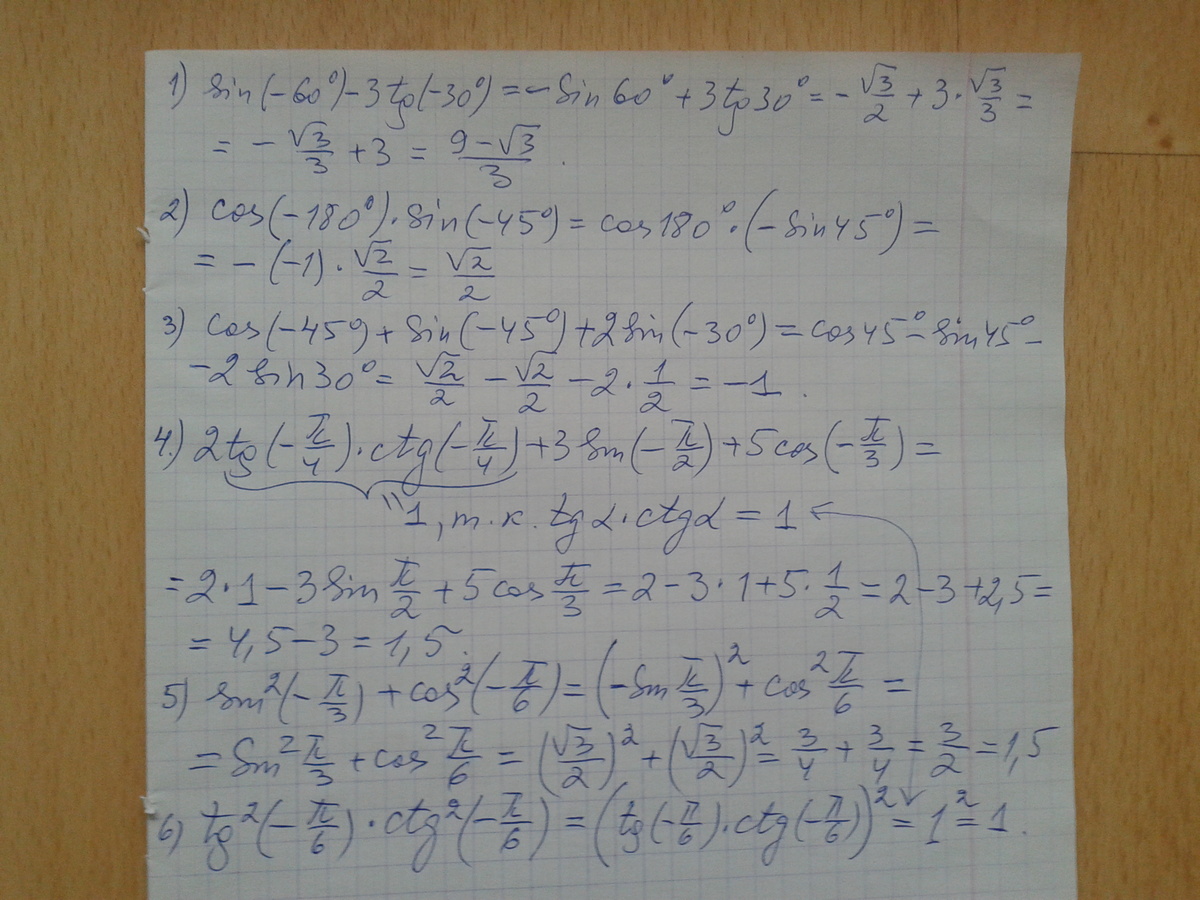 1) sin(-60°)-3tg(-30°)=-sin60°+3tg30°=-√3/2+3·√3/3=
=-√3/3+3=(9-√3)/3.
2) cos(-180°)·sin(-45°)=cos180°·(-sin45°)=
=-(-1)·√2/2=√2/2
3) cos(-45°)+sin(-45°)+2sin(-30°)=cos45°-sin45°-
-2sin30°=√2/2-√2/2-2·1/2=-1.
4.) 2tg(-π/4)·ctg(-π/4)+3sin(-π/2)+5cos(-π/3)=
"1, т.к. tgα·ctgα=1
=2·1-3sin π/2+5cos π/3=2-3·1+5·1/2=2-3+2,5=
=4,5-3=1,5.
5) sin²(-π/3)+cos²(-π/6)=(-sin π/3)²+cos² π/6=
=sin² π/3+cos² π/6=(√3/2)²+(√3/2)²=3/4+3/4=3/2=1,5
6) tg²(-π/6)·ctg²(-π/6)=(tg(-π/6)·ctg(-π/6))²=1²=1.